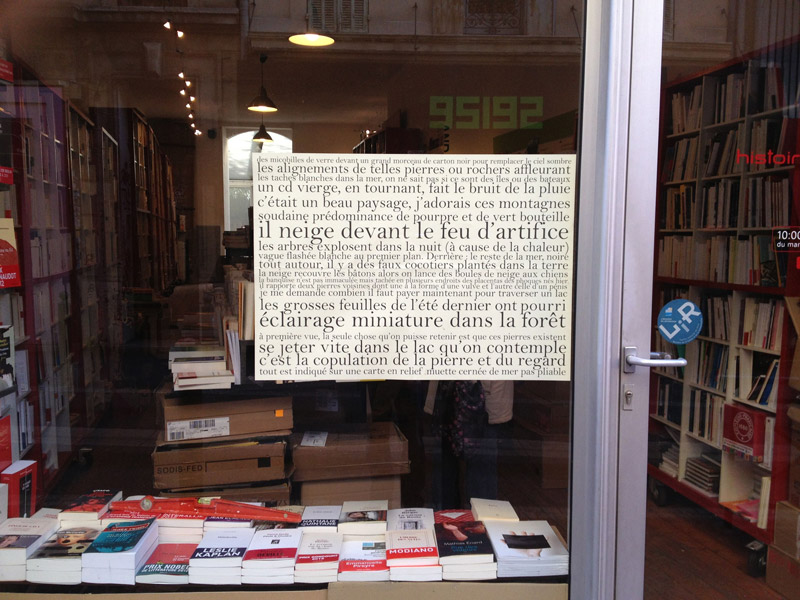 95192
des micobilles de verre devant un grand morceau de carton noir pour remplacer le ciel sombre
les alignements de telles pierres ou rochers affleurant
les taches blanches dans la mer, on ne sait pas si ce sont des îles ou des bateaux
un cd vierge, en tournant, fait le bruit de la pluie
c'était un beau paysage, j'adorais ces montagnes
soudaine prédominance de pourpre et de vert bouteille
il neige devant le feu d'artifice
les arbres explosent dans la nuit (à cause de la chaleur)
vague flashée blanche au premier plan. Derrière : le reste de la mer, noire
tout autour, il y a des faux cocotiers plantés dans la terre
la neige recouvre les bâtons alors on lance des boules de neige aux chiens
la banquise n'est pas immaculée mais tachée en plusieurs endroits des placentas des phoques nés hier
il rapporte deux pierres voisines dont une à la forme d'une vulve et l'autre celle d'un pénis
je me demande combien il faut payer maintenant pour traverser un lac
les grosses feuilles de l'été dernier ont pourri
éclairage miniature dans la forêt
à première vue, la seule chose qu'on puisse retenir est que ces pierres existent
se jeter vite dans le lac qu'on contemple
c'est la copulation de la pierre et du regard
tout est indiqué sur une carte en relief .muette cernée de mer pas pliable
histoir
10:00
du mar
LiR
SODIS-FED
LESLIE KAPLAN
MODIANO
PRIX NOBEL
Mathias Enard
Emmanuelle Pireyre